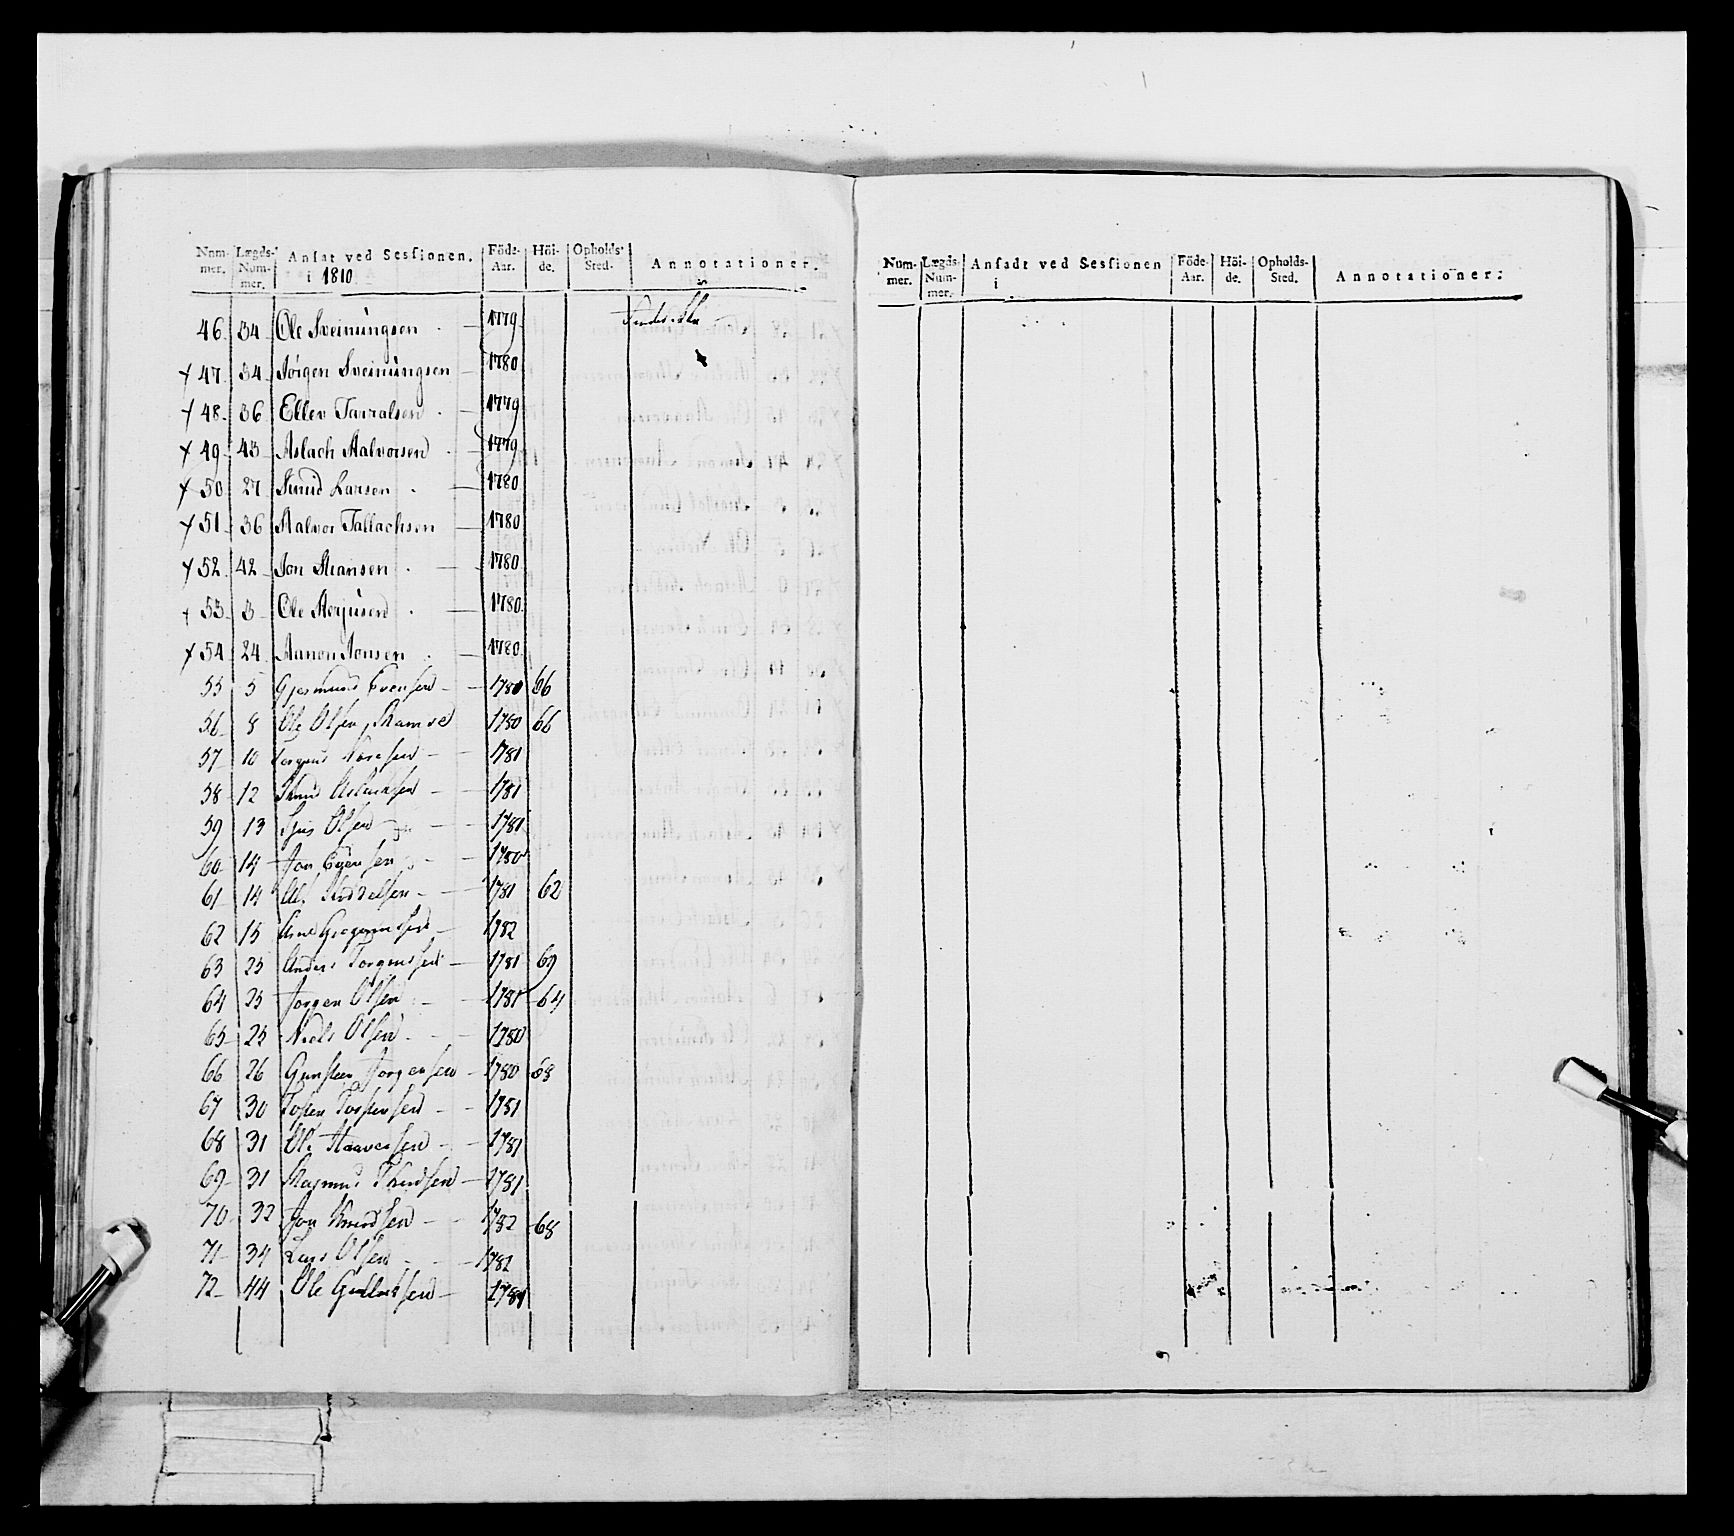 Num- Lægds- Ansat ved Sessionen. Föde- Höi- Opholds- Annotationer.
mer. Num- i 1810 Aar. de. Sted.
mer.
46 34 Ole Sveinungsen 1779
+ 47 34 Jörgen Sveinungsen 1780
+ 48 36 Ellev Tarralsen 1779
+ 49 43 Aslach Aalvorsen 1779
+ 50 27 Knud Larsen 1780
+ 51 36 Aalvor Tallachsen 1780
+ 52 42 Jon 1780
+ 53 3 Ole Terjusen 1780
+ 54 24 Aanon Aonsen 1780
55 5 Gjermund Evensen 1780 66
56 8 Ole Olsen 1780 66
57 10 1781
58 12 Knud Aslachsen 1781
59 13 Olsen 1781
60 14 Jon Evensen 1780
61 14 Ole 1781 62
62 15 1782
63 25 Anders Torgersen 1781 69
64 25 Jorgen Olsen 1781 64
65 25 Niels Olsen 1780
66 26 Gunsten Jorgensen 1780 68
67 30 Tosten Tostensen 1781
68 31 Ole Haaversen 1781
69 31 Rasmus Knudsen 1781
70 32 Jon Knudsen 1782 68
71 34 Lars Olsen 1782
72 44 Ole 1781
Num- Lægds- Ansadt ved Sessionen Föde- Höi- Opholds- Annotationer:
mer. Num- i Aar. de. Sted.
mer.